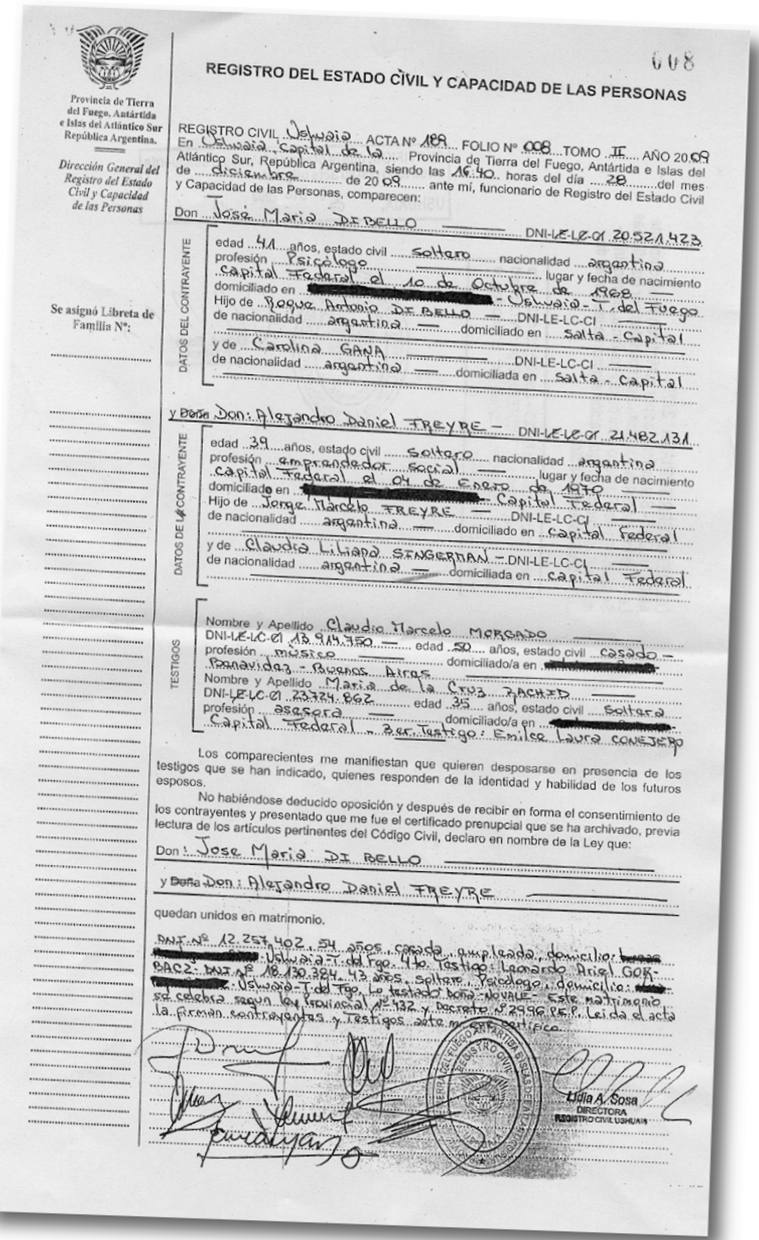 008
Provincia de Tierra
del Fuego, Antártida
e Islas del Atlántico Sur
República Argentina.
Dirección General del
Registro del Estado
Civil y Capacidad
de las Personas
Se asignó Libreta de
Familia Nº:
REGISTRO DEL ESTADO CIVIL Y CAPACIDAD DE LAS PERSONAS
REGISTRO CIVIL Ushuaia ACTA Nº 189 FOLIO Nº 008 TOMO II AÑO 2009
En Ushuaia Capital de la Provincia de Tierra del Fuego, Antártida e Islas del
Atlántico Sur, República Argentina, siendo las 16:40 horas del día 28 del mes
de diciembre de 2009 ante mí, funcionario de Registro del Estado Civil
y Capacidad de las Personas, comparecen:
Don José Maria DI BELLO DNI-LE-LC-CI 20.521.423
DATOS DEL CONTRAYENTE
edad 41 años, estado civil soltero nacionalidad argentina
profesión Psicólogo lugar y fecha de nacimiento
Capital Federal el 10 de Octubre de 1968
domiciliado en - Ushuaia - T. del Fuego
Hijo de Roque Antonio DI BELLO DNI-LE-LC-CI
de nacionalidad argentina domiciliado en Salta - Capital
y de Carolina GANA DNI-LE-LC-CI
de nacionalidad argentina domiciliada en Salta - Capital
y Doña Don: Alejandro Daniel FREYRE - DNI-LE-LC-CI 21.482.131
DATOS DE LA CONTRAYENTE
edad 39 años, estado civil soltero nacionalidad argentina
profesión emprendedor social lugar y fecha de nacimiento
Capital Federal el 04 de Enero de 1970
domiciliado en - Capital Federal
Hijo de Jorge Marcelo FREYRE DNI-LE-LC-CI
de nacionalidad argentina domiciliado en capital Federal
y de Claudia Liliana SINGERMAN - DNI-LE-LC-CI
de nacionalidad argentina domiciliada en capital Federal
TESTIGOS
Nombre y Apellido Claudio Marcelo MORGADO
DNI-LE-LC-CI 13.914.750 edad 50 años, estado civil casado -
profesión músico domiciliado/a en
Benavidez - Buenos Aires
Nombre y Apellido Maria de la Cruz RACHID
DNI-LE-LC-CI 23.724.862 edad 35 años, estado civil soltera
profesión asesora domiciliado/a en
Capital Federal - 3er. Testigo: Emilce Laura CONEJERO
Los comparecientes me manifiestan que quieren desposarse en presencia de los
testigos que se han indicado, quienes responden de la identidad y habilidad de los futuros
esposos.
No habiéndose deducido oposición y después de recibir en forma el consentimiento de
los contrayentes y presentado que me fue el certificado prenupcial que se ha archivado, previa
lectura de los artículos pertinentes del Código Civil, declaro en nombre de la Ley que:
Don: Jose Maria DI BELLO
y Doña Don: Alejandro Daniel FREYRE
quedan unidos en matrimonio.
DNI. Nº 12.257.402, 54 años, casada, empleada, domicilio:
- Ushuaia - T. del Fgo. 4to. Testigo: Leonardo Ariel GOR-
BACZ. DNI. Nº 18.130.384, 43 años, soltero, Psicólogo, domicilio:
- Ushuaia - T. del Fgo. Lo testado Doña - NO VALE - Este matrimonio
se celebra segun ley Provincial Nº 432 y Decreto Nº 2996 P.E.P. Leida el acta
la firman contrayentes y Testigos ante mi certifico
REGISTRO CIVIL
Lidia A. Sosa
DIRECTORA
REGISTRO CIVIL USHUAIA